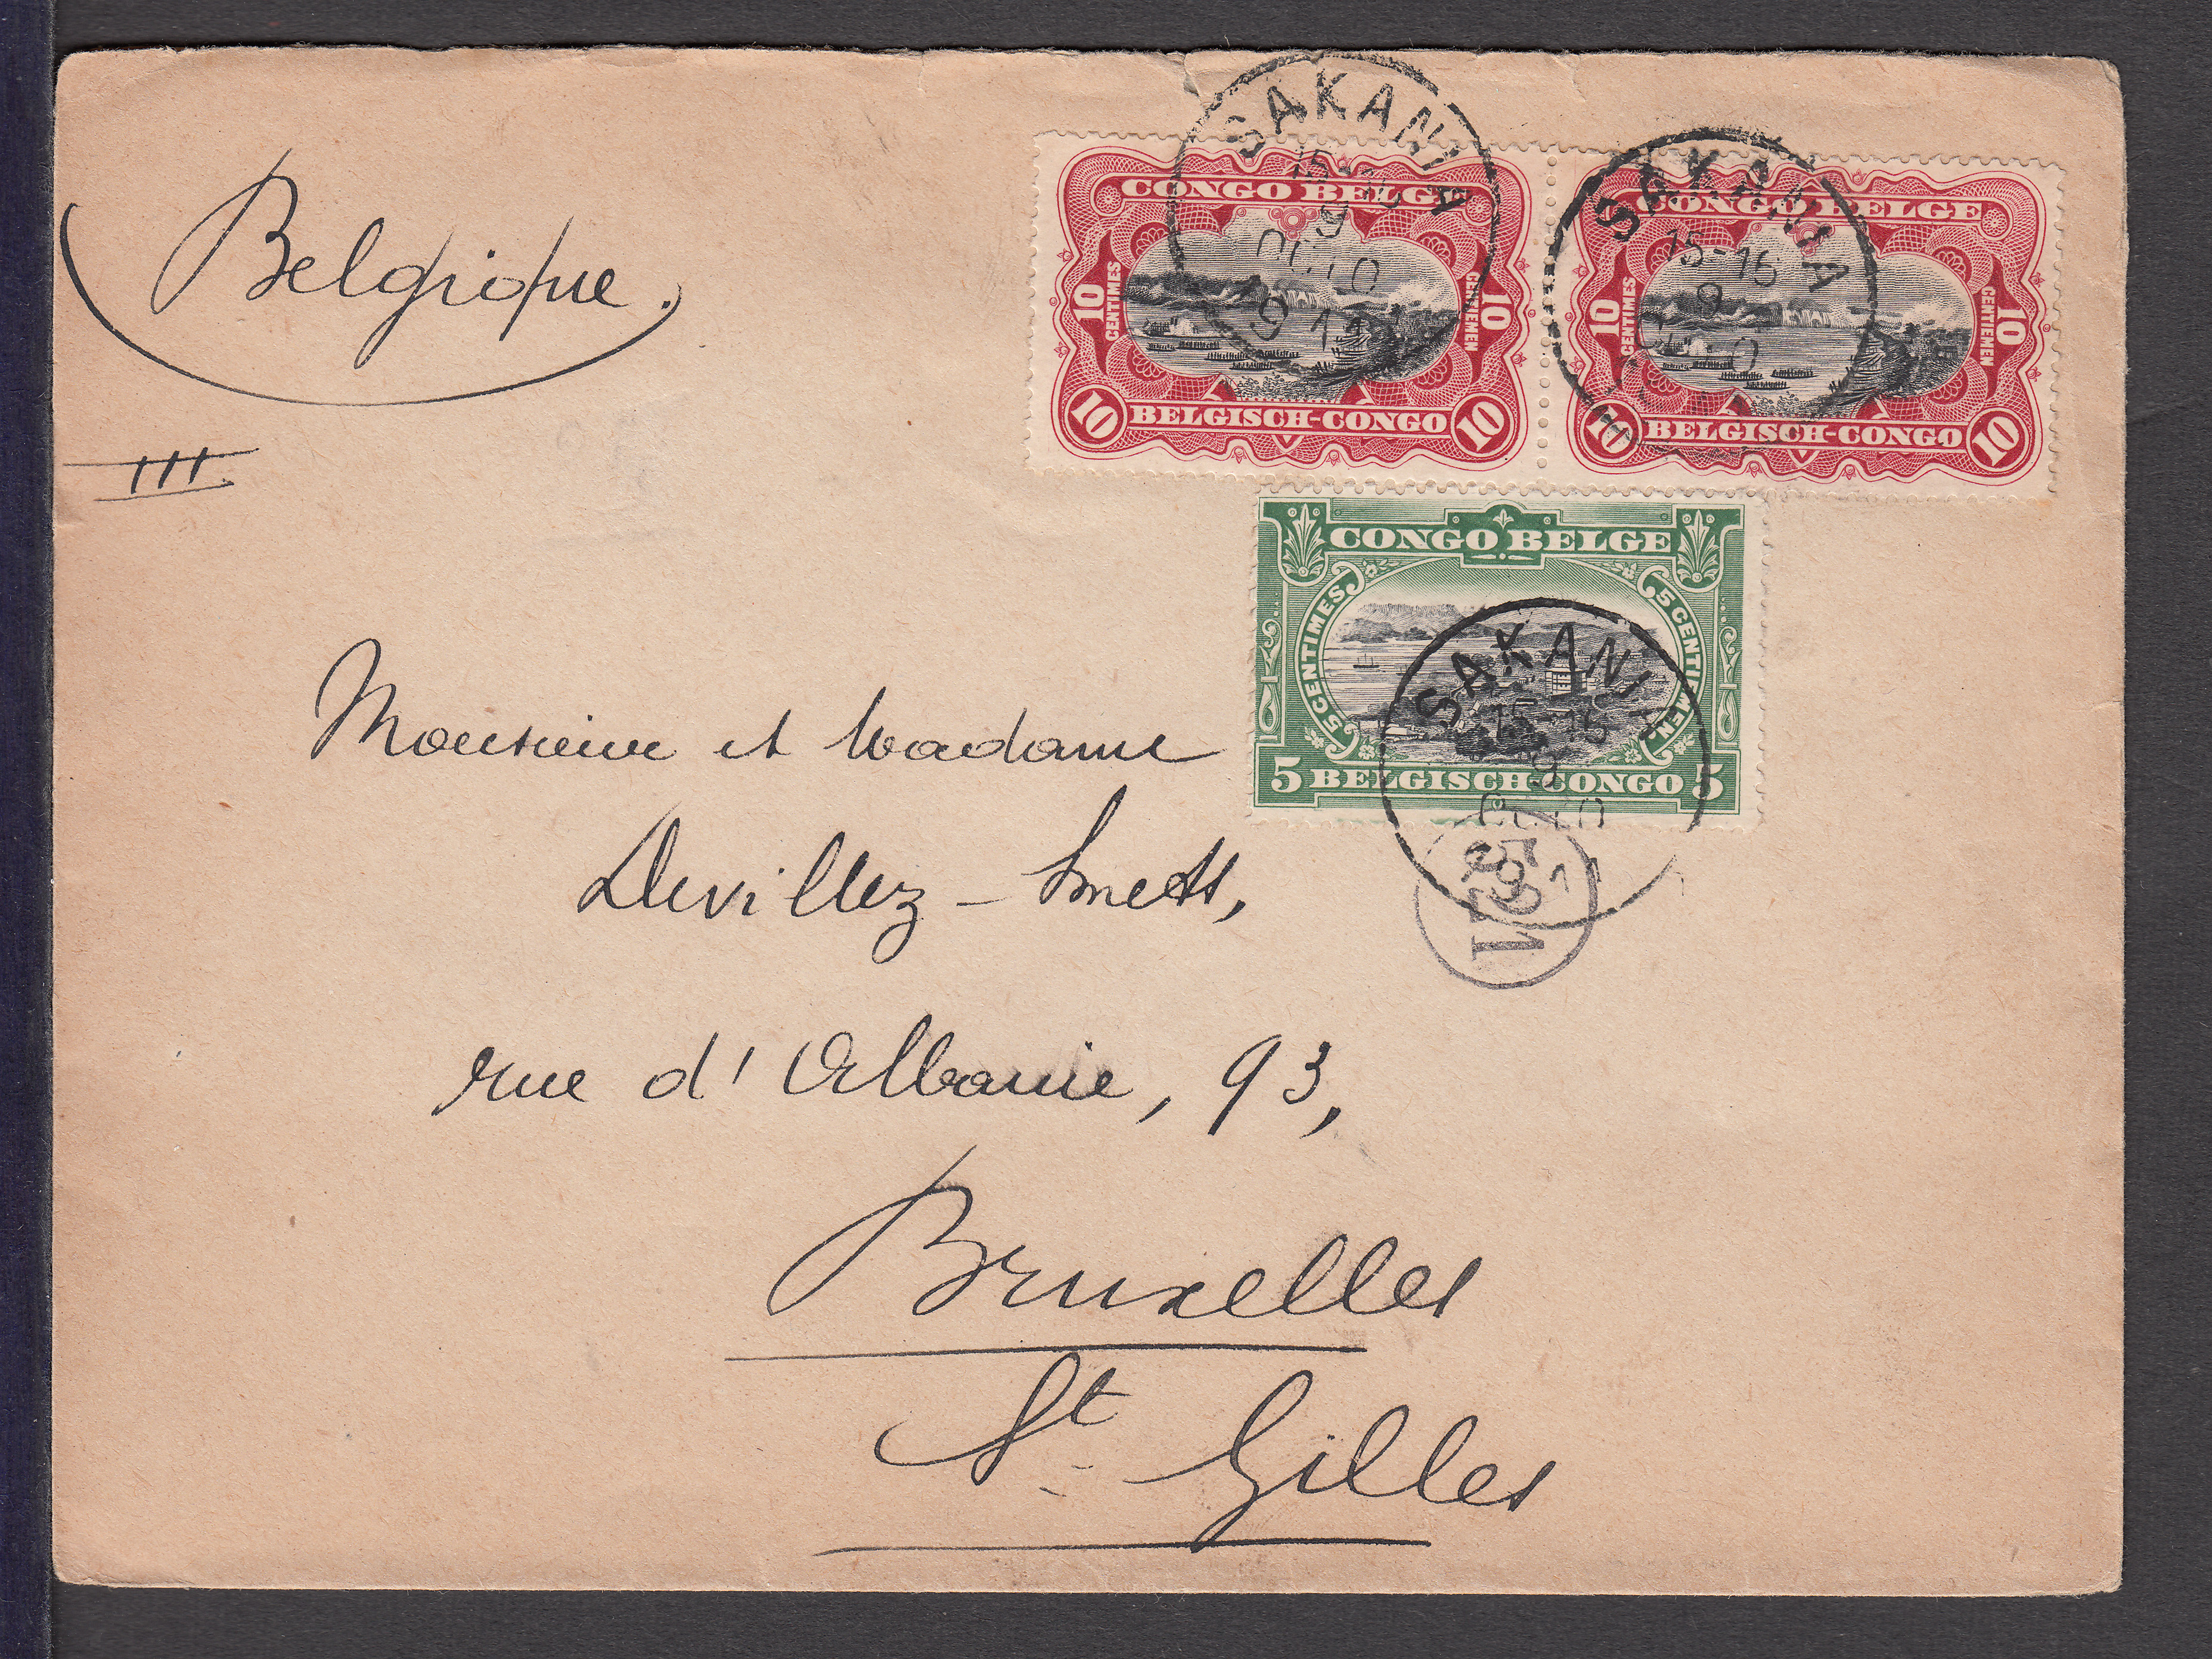 Belgique.
III.
CONGO BELGE
10 CENTIMES
10 CENTIEMEN
10 BELGISCH-CONGO 10
SAKANIA
15-16
9
CONGO BELGE
10 CENTIMES
10 CENTIEMEN
10 BELGISCH-CONGO 10
SAKANIA
15-16
9
CONGO BELGE
5 CENTIMES
5 CENTIEMEN
5 BELGISCH-CONGO 5
SAKANIA
15-16
9
Monsieur et Madame
Devillez - Smets,
rue d'Albanie, 93,
Bruxelles
St Gilles